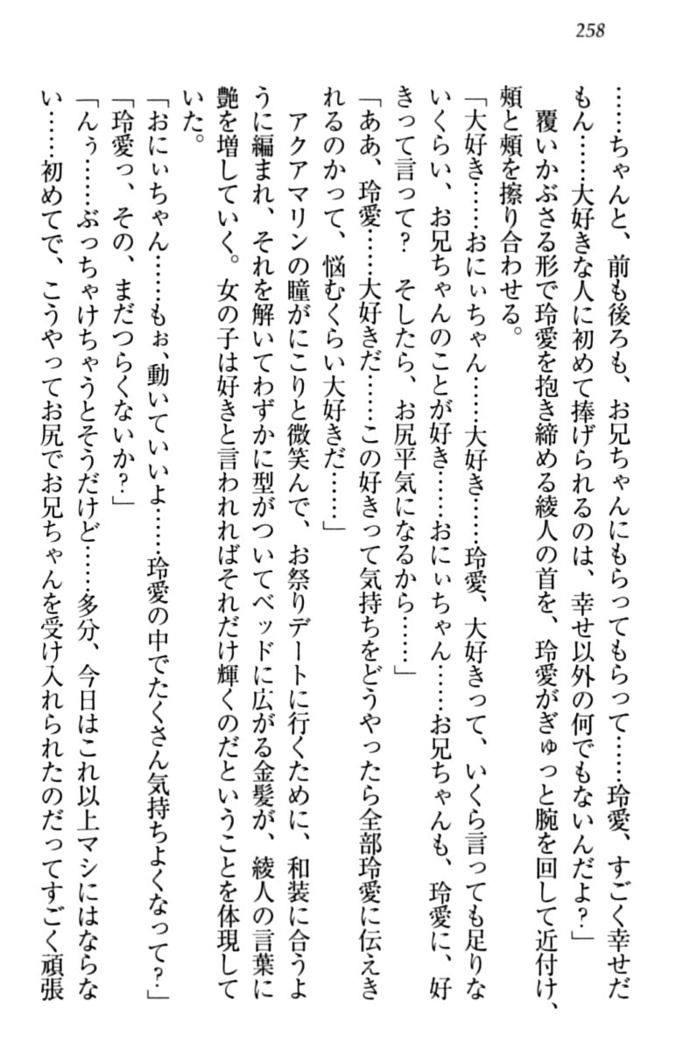 258
……ちゃんと、前も後ろも、お兄ちゃんにもらってもらって……玲愛、すごく幸せだ
もん……大好きな人に初めて捧げられるのは、幸せ以外の何でもないんだよ？」
覆いかぶさる形で玲愛を抱き締める綾人の首を、玲愛がぎゅっと腕を回して近付け、
頬と頬を擦り合わせる。
「大好き……おにぃちゃん……大好き……玲愛、大好きって、いくら言っても足りな
いくらい、お兄ちゃんのことが好き……おにぃちゃん……お兄ちゃんも、玲愛に、好
きって言って？　そしたら、お尻平気になるから……」
「ああ、玲愛……大好きだ……この好きって気持ちをどうやったら全部玲愛に伝えき
れるのかって、悩むくらい大好きだ……」
アクアマリンの瞳がにこりと微笑んで、お祭りデートに行くために、和装に合うよ
うに編まれ、それを解いてわずかに型がついてベッドに広がる金髪が、綾人の言葉に
艶を増していく。女の子は好きと言われればそれだけ輝くのだということを体現して
いた。
「おにぃちゃん……もぉ、動いていいよ……玲愛の中でたくさん気持ちよくなって？」
「玲愛っ、その、まだつらくないか？」
「んぅ……ぶっちゃけちゃうとそうだけど……多分、今日はこれ以上マシにはならな
い……初めてで、こうやってお尻でお兄ちゃんを受け入れられたのだってすごく頑張